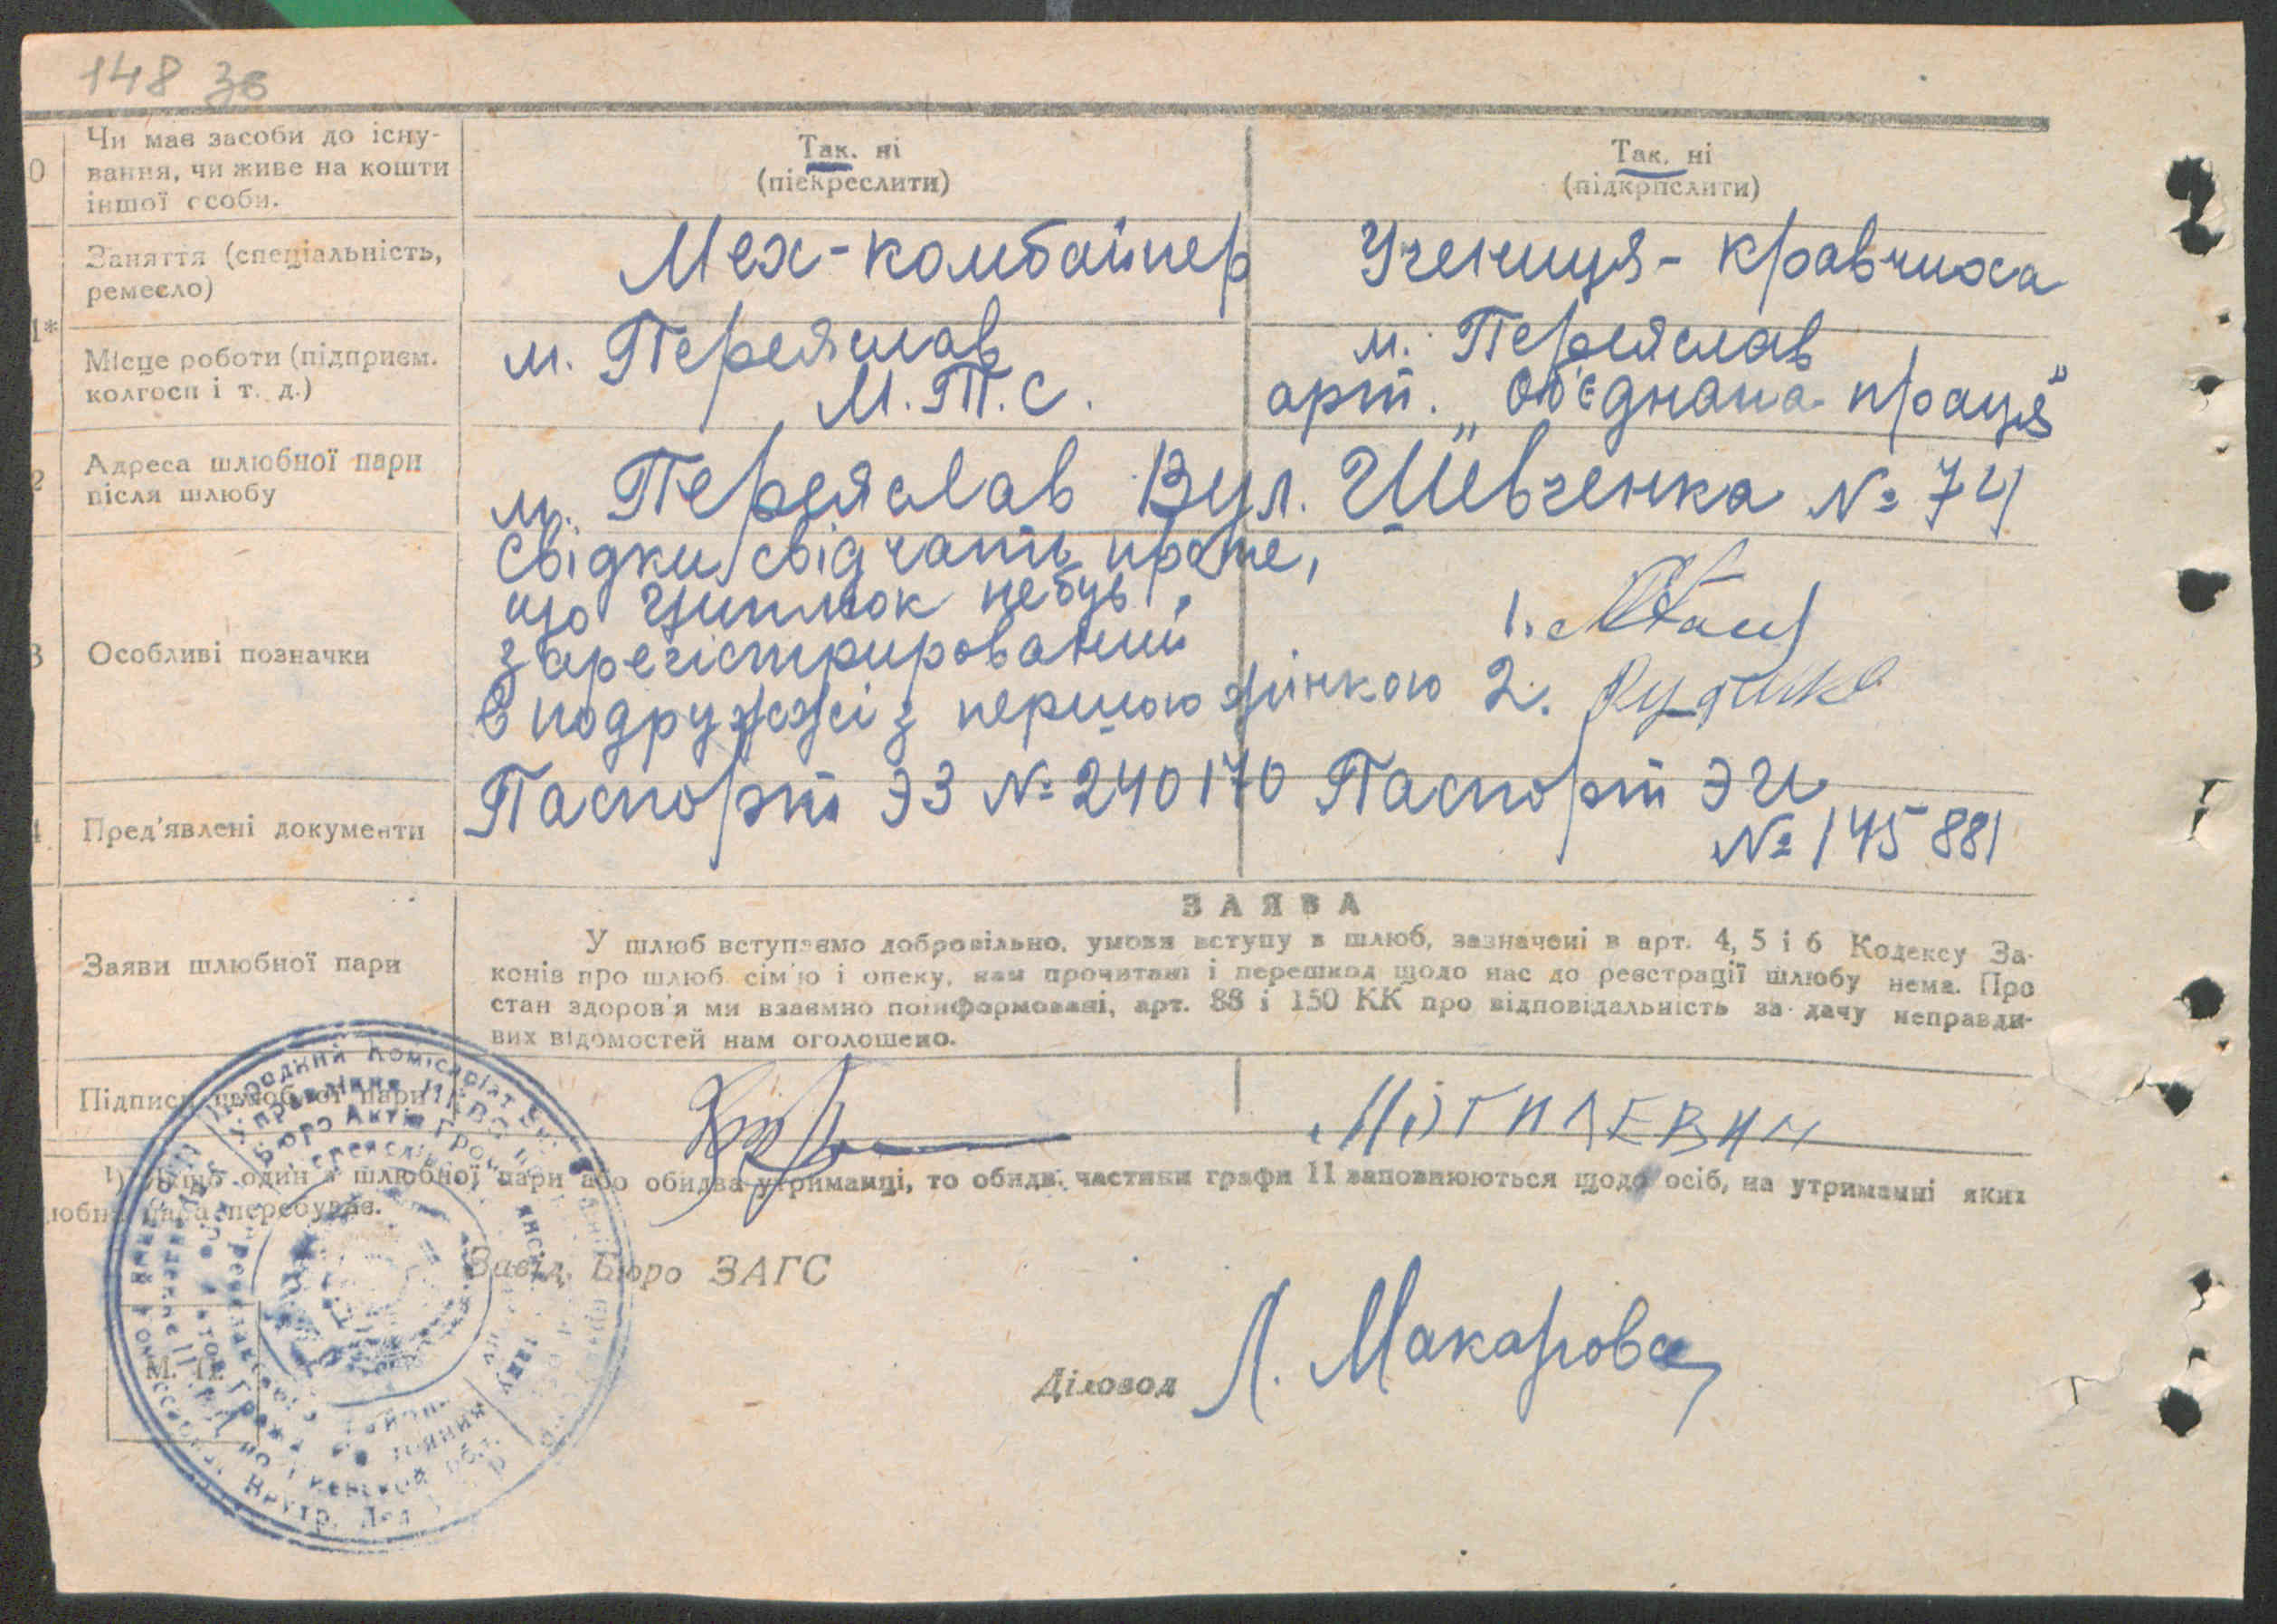 148 зв
0 Чи має засоби до існу-
вання, чи живе на кошти
іншої особи.
Так. ні
(підкреслити)
Так. ні
(підкрпслити)
1*
Заняття (спеціальність,
ремесло)
Мех-комбайнер
Учениця-кравчиха
Місце роботи (підприєм.
колгосп і т. д.)
м. Переяслав
М.Т.С.
м. Переяслав
арт. „Об'єднана праця"
2 Адреса шлюбної пари
після шлюбу
м. Переяслав Вул. Шевченка № 74
3 Особливі позначки
Свідки свідчать проте,
що небув
зарегістрирований
в подружжі з першою жінкою
1.
2.
4 Пред'явлені документи
Паспорт ЭЗ № 240170
Паспорт ЭИ
№ 145881
Заяви шлюбної пари
ЗАЯВА
У шлюб вступаємо добровільно, умови вступу в шлюб, зазначені в арт. 4, 5 і 6 Кодексу За-
конів про шлюб сім'ю і опеку, нам прочитані і перешкод щодо нас до реєстрації шлюбу нема. Про
стан здоров'я ми взаємно поінформовані, арт. 88 і 150 КК про відповідальність за дачу неправди-
вих відомостей нам оголошено.
Підписи шлюбної пари
МОГИЛЕВИЧ
¹) Якщо один з шлюбної пари або обидва утриманці, то обидв. частини графи 11 заповнюються щодо осіб, на утриманні яких
любна пара перебуває.
Завід. Бюро ЗАГС
М. П.
Діловод Л. Макарова